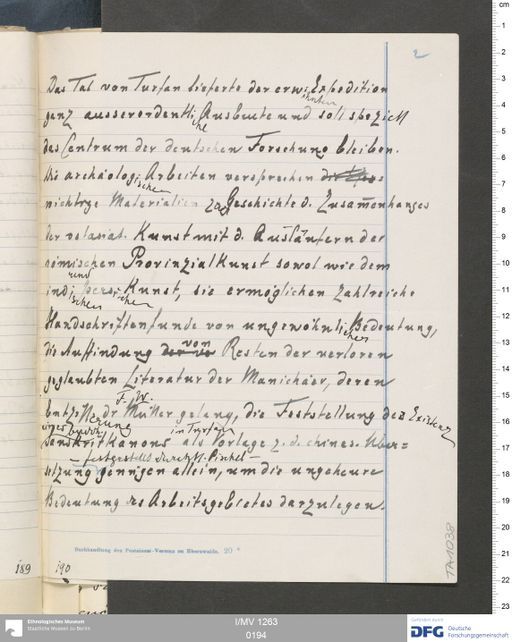 2
Das Tal von Turfan lieferte der erwähnten Expedition
ganz ausserordentliche Ausbeute und soll speziell
das Centrum der deutschen Forschung bleiben.
Die archäologischen Arbeiten versprechen
wichtige Materialien zur Geschichte d. Zusammenhanges
der ostasiat. Kunst mit d. Ausläufern der
römischen Provinzialkunst sowol wie dem
indischen und persischen Kunst, die ermöglichen zahlreiche
Handschriftenfunde von ungewöhnlicher Bedeutung,
die Auffindung von Resten der verloren
geglaubten Literatur der Manichäer, deren
Entzifferung F. W.
dr Müller gelang, die Feststellung der Existenz
eines buddh. in Turfan
Sanskritkanons als Vorlage z. d. chines. Über-
— festgestellt durch H. Pischel —
setzung genügen allein, um die ungeheure
Bedeutung des Arbeitsgebietes darzulegen.
Buchhandlung des Pensions-Vereins zu Eberswalde. 20 *
189 190
TA1038
cm
1
2
3
4
5
6
7
8
9
10
11
12
13
14
15
16
17
18
19
20
21
22
23
Ethnologisches Museum
Staatliche Museen zu Berlin
I/MV 1263
0194
Gefördert durch
DFG Deutsche
Forschungsgemeinschaft